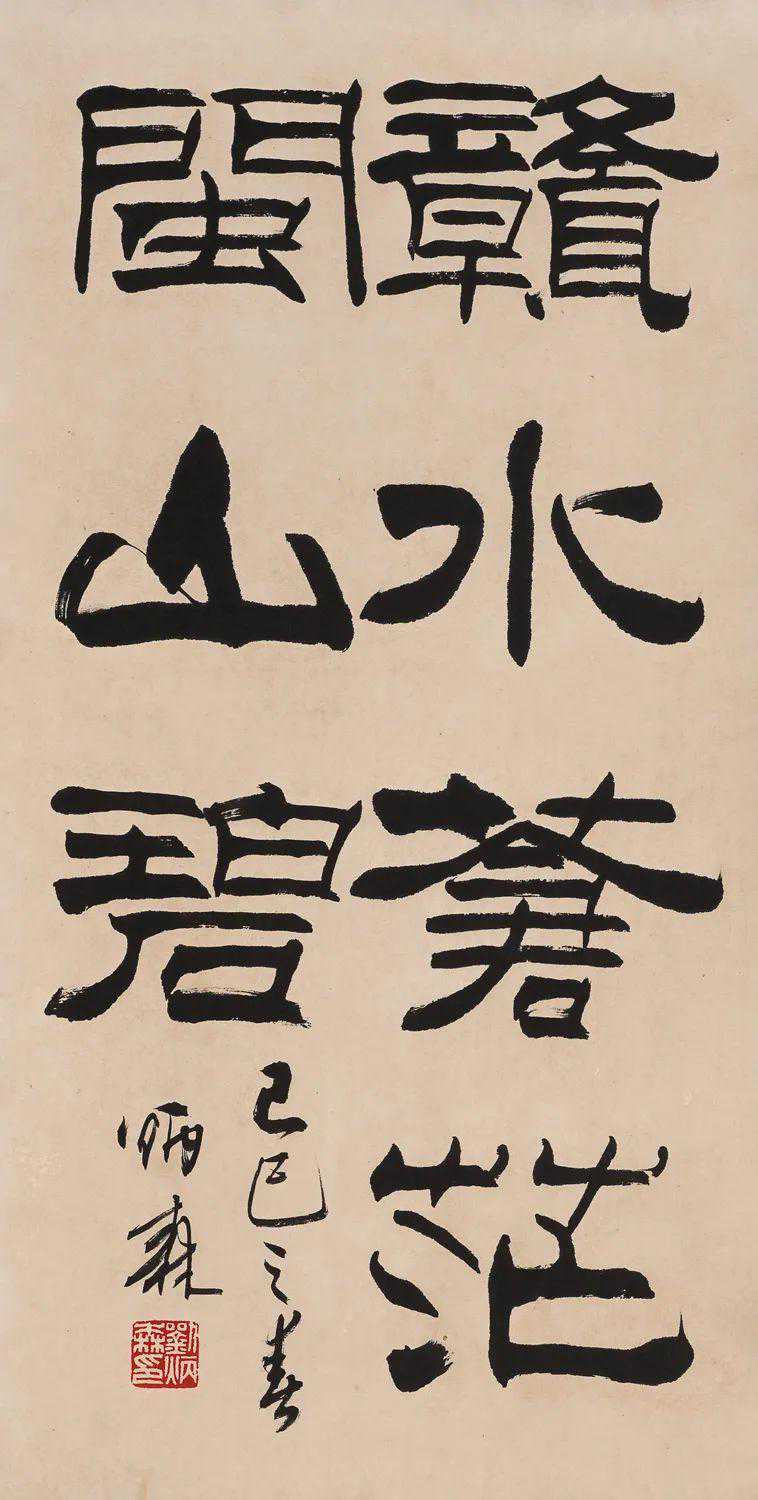 贛水蒼茫
閩山碧
己巳之春
炳森
劉炳
森印